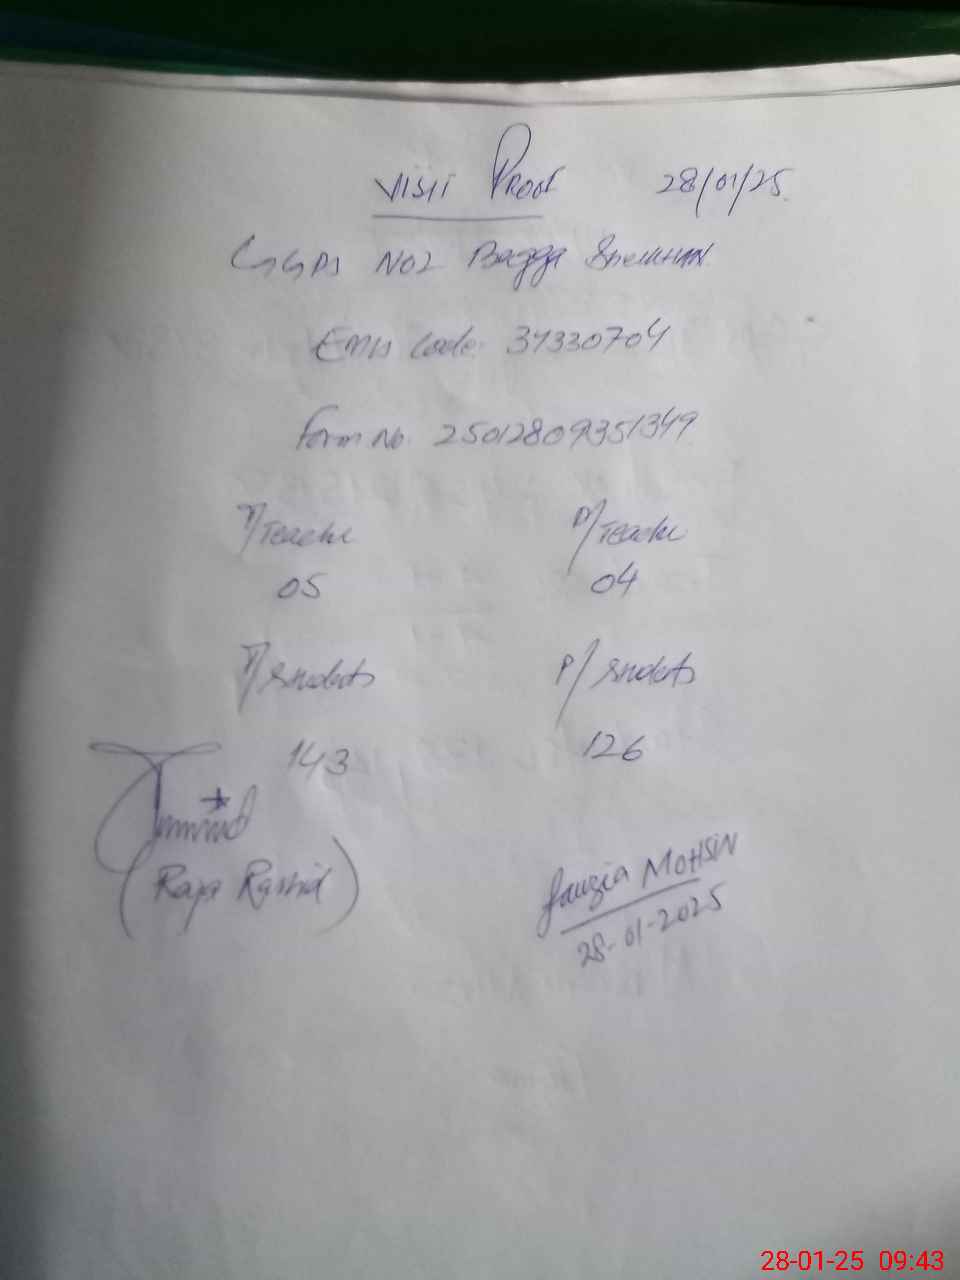 VISIT PROOF 28/01/25.
GGPS NO2 Bagga
EMIS Code: 37330704
Form No. 25012809351349
T/Teache P/Teache
05 04
T/Students P/Students
143 126
(Raja Rashid)
Fauzia MOHSIN
28-01-2025
28-01-25 09:43